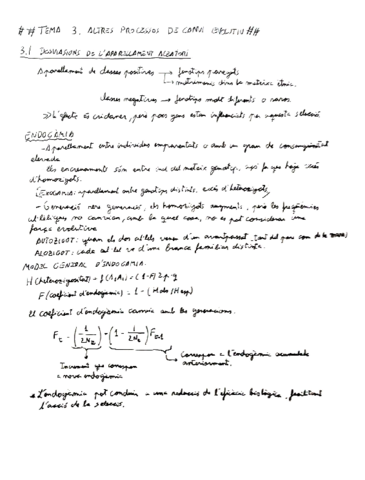 ##TEMA 3. ALTRES PROCESSOS DE CANVI EVOLUTIU##
3.1 DESVIACIONS DE L'APARELLAMENT ALEATORI
Aparellament de classes positives → fenotips parescuts
→ matrimonis dins la mateixa ètnia.
classes negatives → fenotips molt diferents o rares.
L'efecte és evident, però pocs gens estan influenciats per aquesta selecció.
ENDOGÀMIA
- Aparellament entre individus emparentats o amb un grau de consanguinitat
elevada
Els encreuaments són entre ind. del mateix genotip, així fa que hagi excés
d'homozigots.
(Exogàmia: aparellament entre genotips distints, excés d'heterozigots)
- Generació rere generació, els homozigots augmenten, però les freqüències
al·lèliques no canvien, amb la qual cosa, no es pot considerar una
força evolutiva
AUTOZIGOT: quan els dos al·lels venen d'un avantpassat, tant del pare com de la mare
ALOZIGOT: cada al·lel ve d'una branca familiar distinta.
MODEL GENERAL D'ENDOGÀMIA.
H (heterozigositat) = f(A₁A₂) = (1-F) 2pq
F (coeficient d'endogàmia) = 1 - (H obs / H esp)
El coeficient d'endogàmia canvia amb les generacions.
F_t = (1/2N_e) + (1 - 1/2N_e) F_t-1
Correspon a l'endogàmia acumulada
anteriorment.
Increment que correspon
a nova endogàmia
• L'endogàmia pot conduir a una reducció de l'eficàcia biològica, facilitant
l'acció de la selecció.